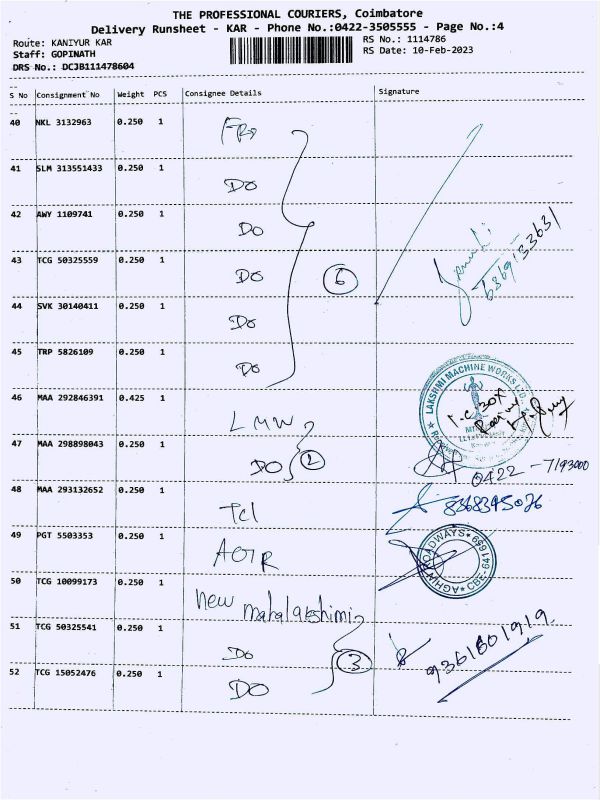 THE PROFESSIONAL COURIERS, Coimbatore
Delivery Runsheet - KAR - Phone No.:0422-3505555 - Page No.:4
Route: KANIYUR KAR RS No.: 1114786
Staff: GOPINATH RS Date: 10-Feb-2023
DRS No.: DCJB111478604
S No Consignment No Weight PCS Consignee Details Signature
40 NKL 3132963 0.250 1
41 SLM 313551433 0.250 1 DO
42 AWY 1109741 0.250 1 DO
43 TCG 50325559 0.250 1 DO 6 6369133631
44 SVK 30140411 0.250 1 DO
45 TRP 5826109 0.250 1 DO
46 MAA 292846391 0.425 1 LMW LAKSHMI MACHINE WORKS LTD.
47 MAA 298898043 0.250 1 DO 2 0422-7193000
48 MAA 293132652 0.250 1 Tcl 8368395026
49 PGT 5503353 0.250 1 ROADWAYS CBE-641 659
50 TCG 10099173 0.250 1 New mahalakshimi
51 TCG 50325541 0.250 1 DO 3 9361601919
52 TCG 15052476 0.250 1 DO